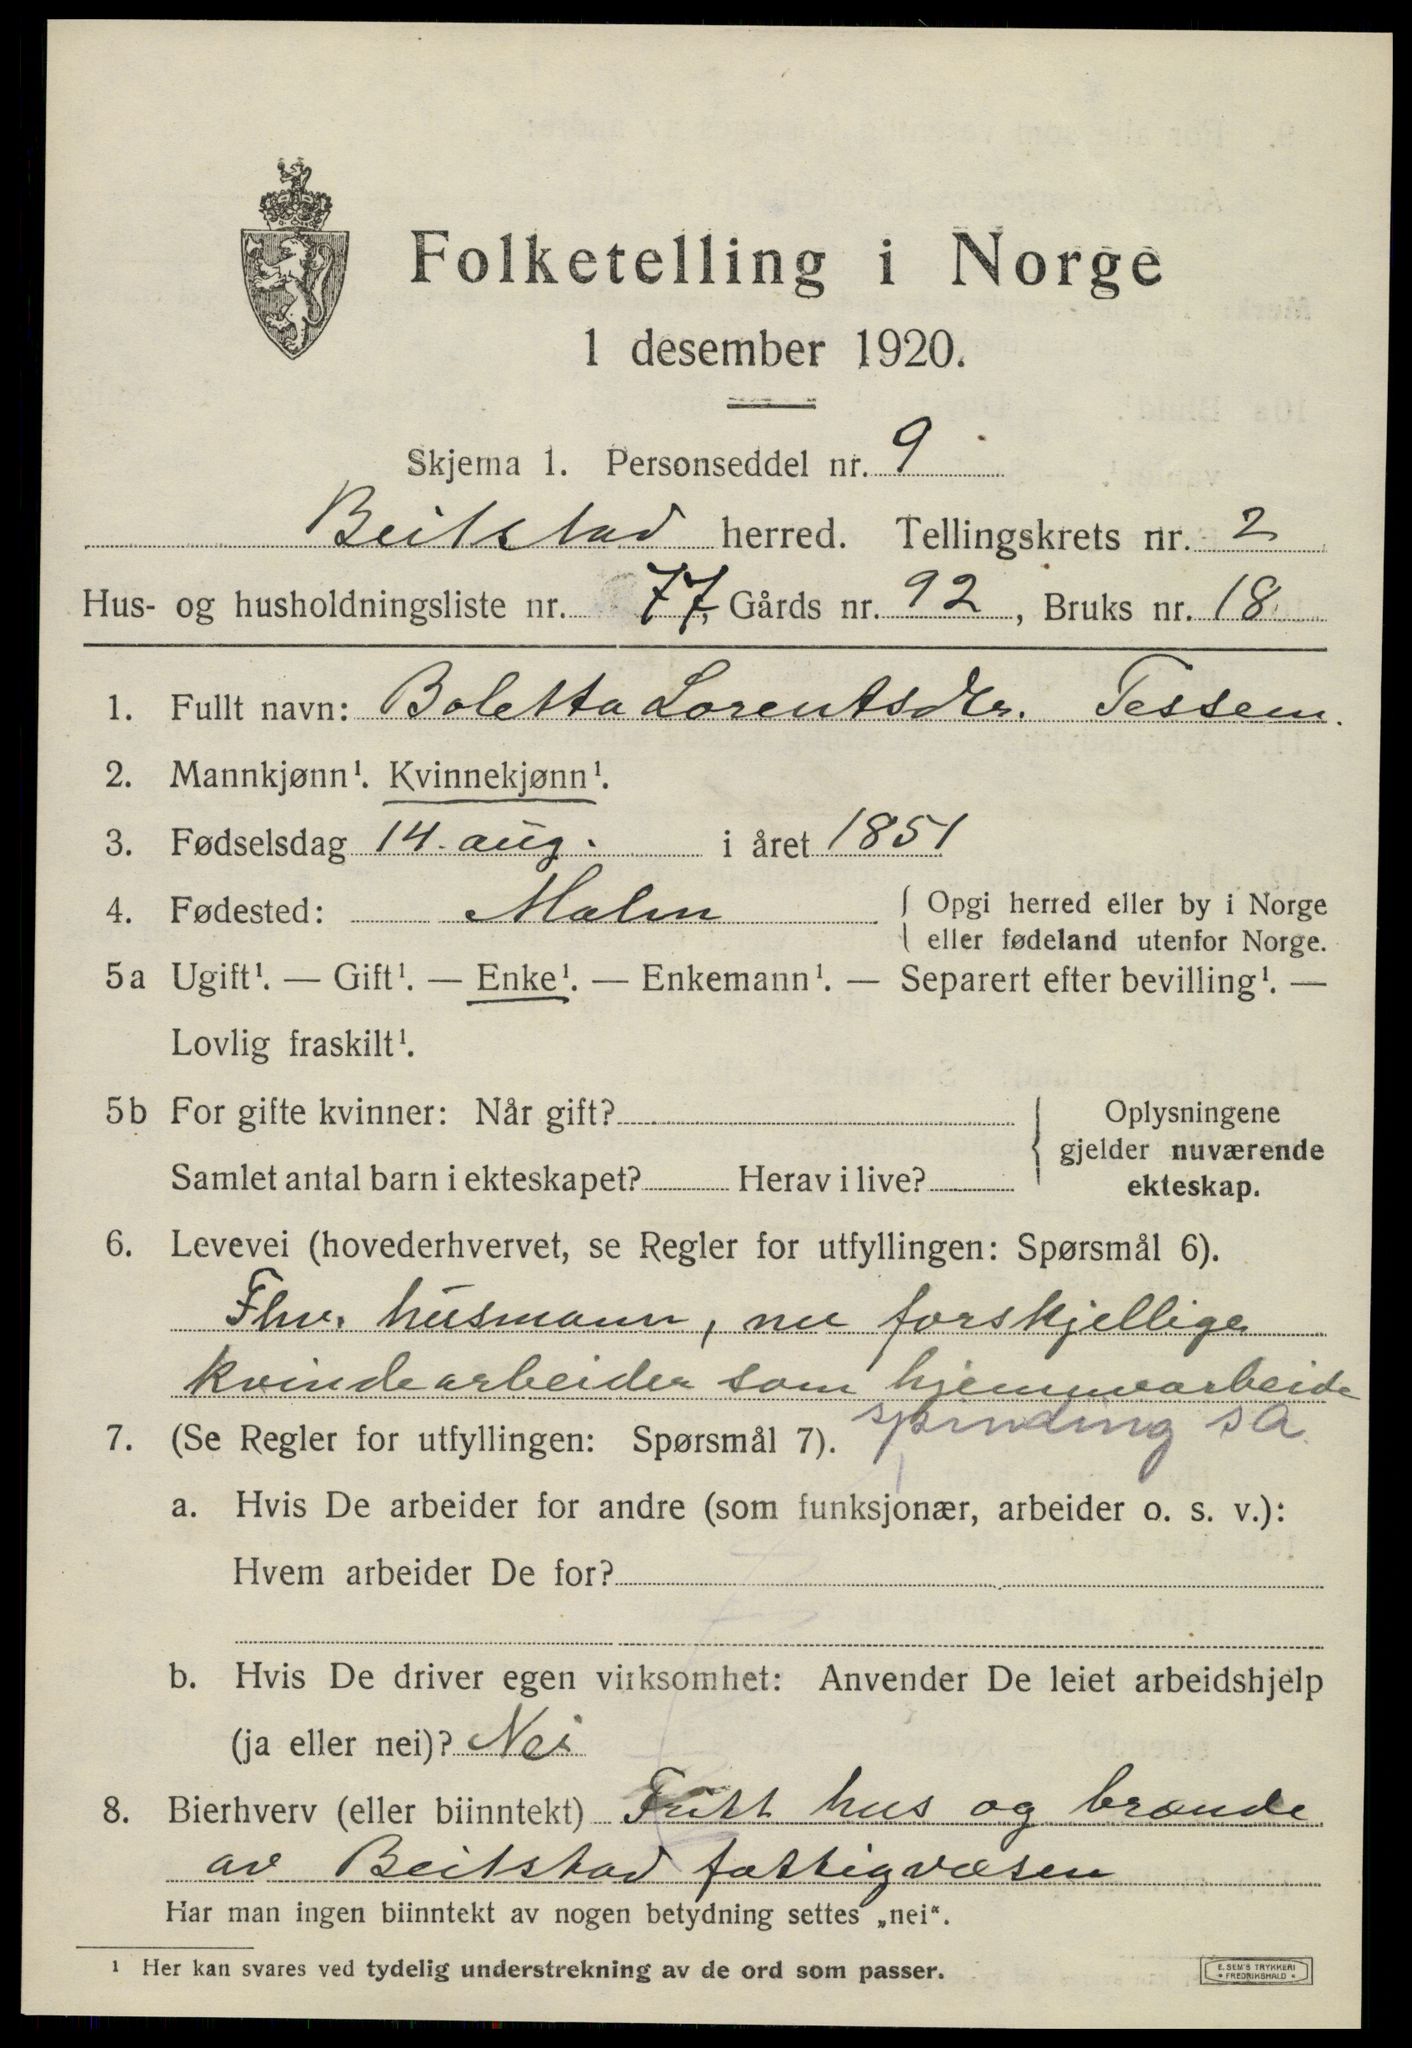 Folketelling i Norge
1 desember 1920.
Skjema 1. Personseddel nr. 9
Beitstad herred. Tellingskrets nr. 2
Hus- og husholdningsliste nr. 77, Gårds nr. 92, Bruks nr. 18
1. Fullt navn: Boletta Lorentsdtr. Tessem.
2. Mannkjønn¹. Kvinnekjønn¹.
3. Fødselsdag 14. aug. i året 1851
4. Fødested: Malm { Opgi herred eller by i Norge
eller fødeland utenfor Norge.
5a Ugift¹. — Gift¹. — Enke¹. — Enkemann¹. — Separert efter bevilling¹. —
Lovlig fraskilt¹.
5b For gifte kvinner: Når gift? { Oplysningene
gjelder nuværende
Samlet antal barn i ekteskapet? Herav i live? ekteskap.
6. Levevei (hovederhvervet, se Regler for utfyllingen: Spørsmål 6).
Fhv. husmann, nu forskjellige
kvindearbeider som hjemmearbeide
spinding sa
7. (Se Regler for utfyllingen: Spørsmål 7).
a. Hvis De arbeider for andre (som funksjonær, arbeider o. s. v.):
Hvem arbeider De for?
b. Hvis De driver egen virksomhet: Anvender De leiet arbeidshjelp
(ja eller nei)? Nei
8. Bierhverv (eller biinntekt) Fritt hus og brænde
av Beitstad fattigvæsen
Har man ingen biinntekt av nogen betydning settes „nei“.
¹ Her kan svares ved tydelig understrekning av de ord som passer.
E. SEM'S TRYKKERI
FREDRIKSHALD